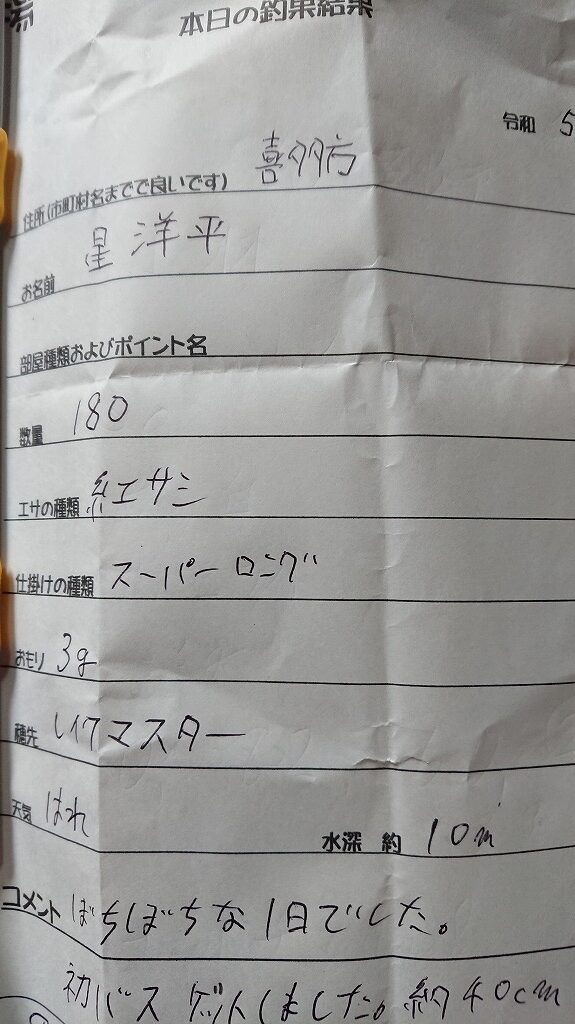 本日の釣果結果
令和 5
住所(市町村名までで良いです) 喜多方
お名前 星 洋平
部屋種類およびポイント名
数量 180
エサの種類 紅エサシ
仕掛けの種類 スーパーロング
おもり 3g
穂先 レイクマスター
天気 はれ 水深 約 10m
コメント ぼちぼちな1日でした。
初バス ゲットしました。約40cm